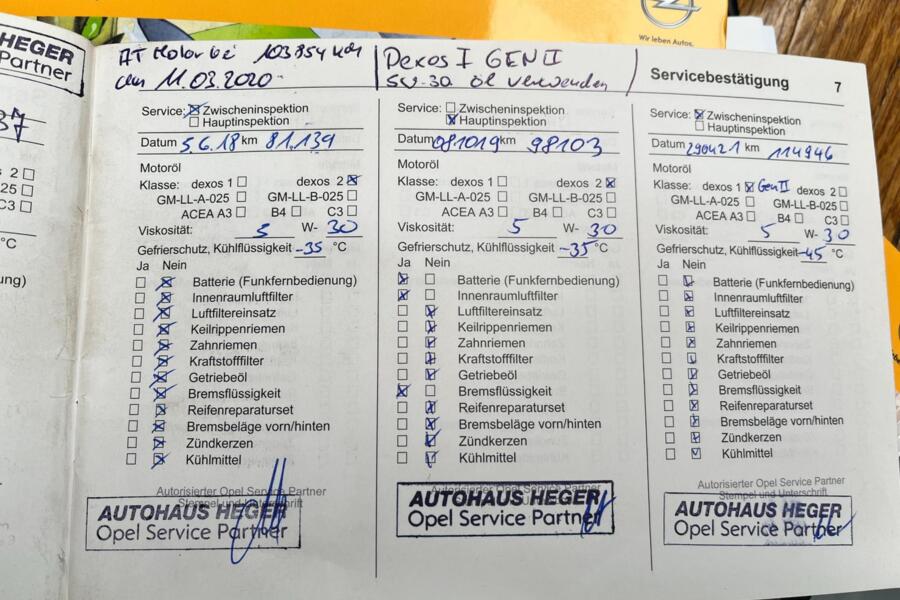 HEGER
Partner
37
2
025
C3
°C
ung)
Wir leben Autos.
AT Motor bei 103854 km
am 11.03.2020
Dexos I GEN II
5W-30 öl verwenden
Servicebestätigung 7
Service: Zwischeninspektion
Hauptinspektion
Datum 5.6.18 km 81.139
Motoröl
Klasse: dexos 1 dexos 2
GM-LL-A-025 GM-LL-B-025
ACEA A3 B4 C3
Viskosität: 5 W- 30
Gefrierschutz, Kühlflüssigkeit -35 °C
Ja Nein
Batterie (Funkfernbedienung)
Innenraumluftfilter
Luftfiltereinsatz
Keilrippenriemen
Zahnriemen
Kraftstofffilter
Getriebeöl
Bremsflüssigkeit
Reifenreparaturset
Bremsbeläge vorn/hinten
Zündkerzen
Kühlmittel
Autorisierter Opel Service Partner
Stempel und Unterschrift
AUTOHAUS HEGER
Opel Service Partner
Service: Zwischeninspektion
Hauptinspektion
Datum 081019 km 98103
Motoröl
Klasse: dexos 1 dexos 2
GM-LL-A-025 GM-LL-B-025
ACEA A3 B4 C3
Viskosität: 5 W- 30
Gefrierschutz, Kühlflüssigkeit -35 °C
Ja Nein
Batterie (Funkfernbedienung)
Innenraumluftfilter
Luftfiltereinsatz
Keilrippenriemen
Zahnriemen
Kraftstofffilter
Getriebeöl
Bremsflüssigkeit
Reifenreparaturset
Bremsbeläge vorn/hinten
Zündkerzen
Kühlmittel
Autorisierter Opel Service Partner
AUTOHAUS HEGER
Opel Service Partner
Service: Zwischeninspektion
Hauptinspektion
Datum 290421 km 114946
Motoröl
Klasse: dexos 1 Gen II dexos 2
GM-LL-A-025 GM-LL-B-025
ACEA A3 B4 C3
Viskosität: 5 W- 30
Gefrierschutz, Kühlflüssigkeit -45 °C
Ja Nein
Batterie (Funkfernbedienung)
Innenraumluftfilter
Luftfiltereinsatz
Keilrippenriemen
Zahnriemen
Kraftstofffilter
Getriebeöl
Bremsflüssigkeit
Reifenreparaturset
Bremsbeläge vorn/hinten
Zündkerzen
Kühlmittel
Autorisierter Opel Service Partner
Stempel und Unterschrift
AUTOHAUS HEGER
Opel Service Partner